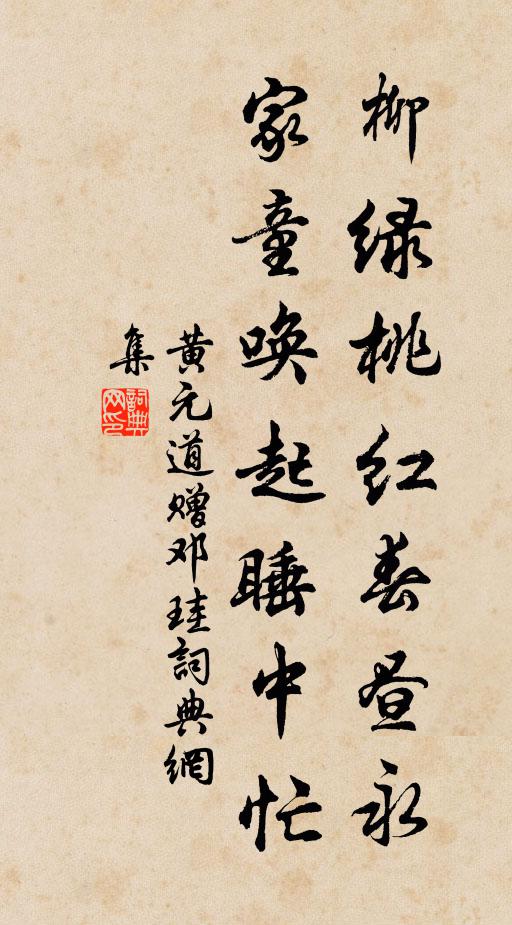 柳绿桃红春昼永
家童唤起睡中忙
黄元道赠邓珪詞典網
集
詞典网印